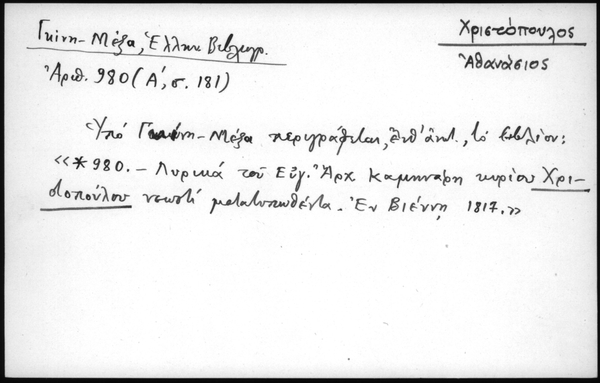 Γκίνη-Μέξα, Ἑλλην. Βιβλιογρ.
Χριστόπουλος
Ἀριθ. 980 (Α΄, σ. 181)
Ἀθανάσιος
Ὑπό Γκίνη-Μέξα περιγράφεται, τό βιβλίον:
«*980. – Λυρικά τοῦ Εὐγ. Ἄρχ Καμηνάρη κυρίου Χρι-
στοπούλου νεωστί μετατυπωθέντα. Ἐν Βιέννῃ 1817.»